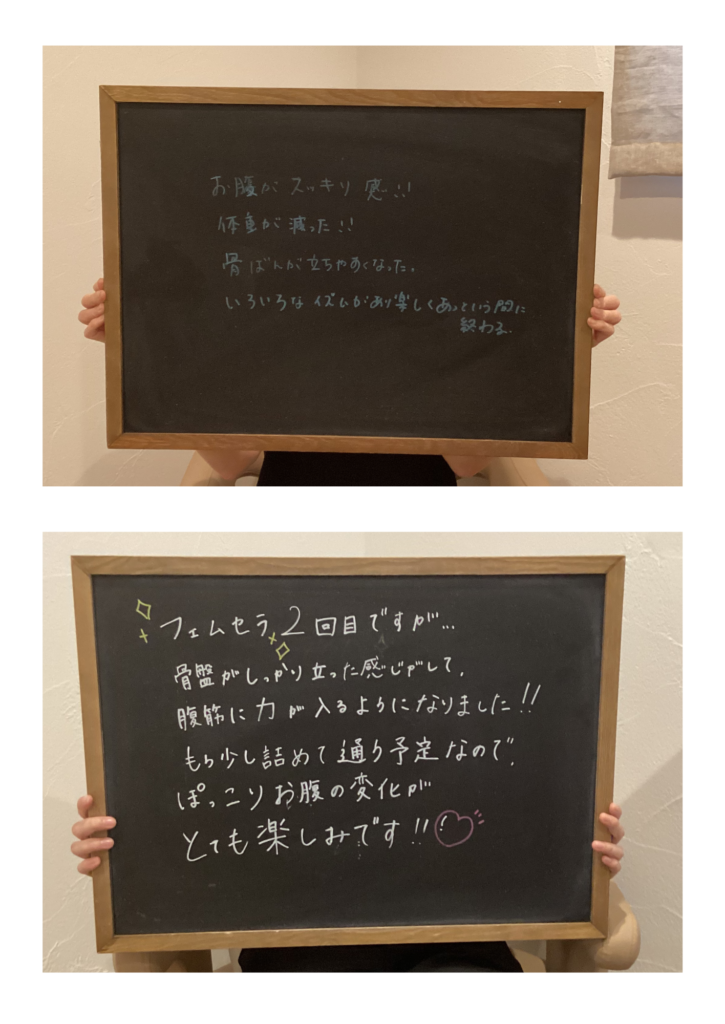 お腹がスッキリ感!!
体重が減った!!
骨ばんが立ちやすくなった。
いろいろなイズムがあり楽しくあっという間に
終わる。
フェムセラ2回目ですが...
骨盤がしっかり立った感じがして、
腹筋に力が入るようになりました!!
もう少し詰めて通う予定なので、
ぽっこりお腹の変化が
とても楽しみです!!